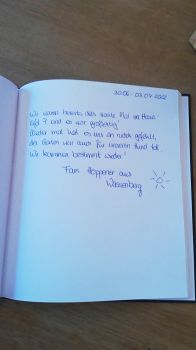 30.06 - 03.07.2022
Wir waren bereits das zweite Mal im Haus
und es war großartig!
Wieder mal hat es uns an nichts gefehlt,
der Garten war auch für unseren Hund toll
Wir kommen bestimmt wieder!
Fam. Hoppener aus
Wassenberg